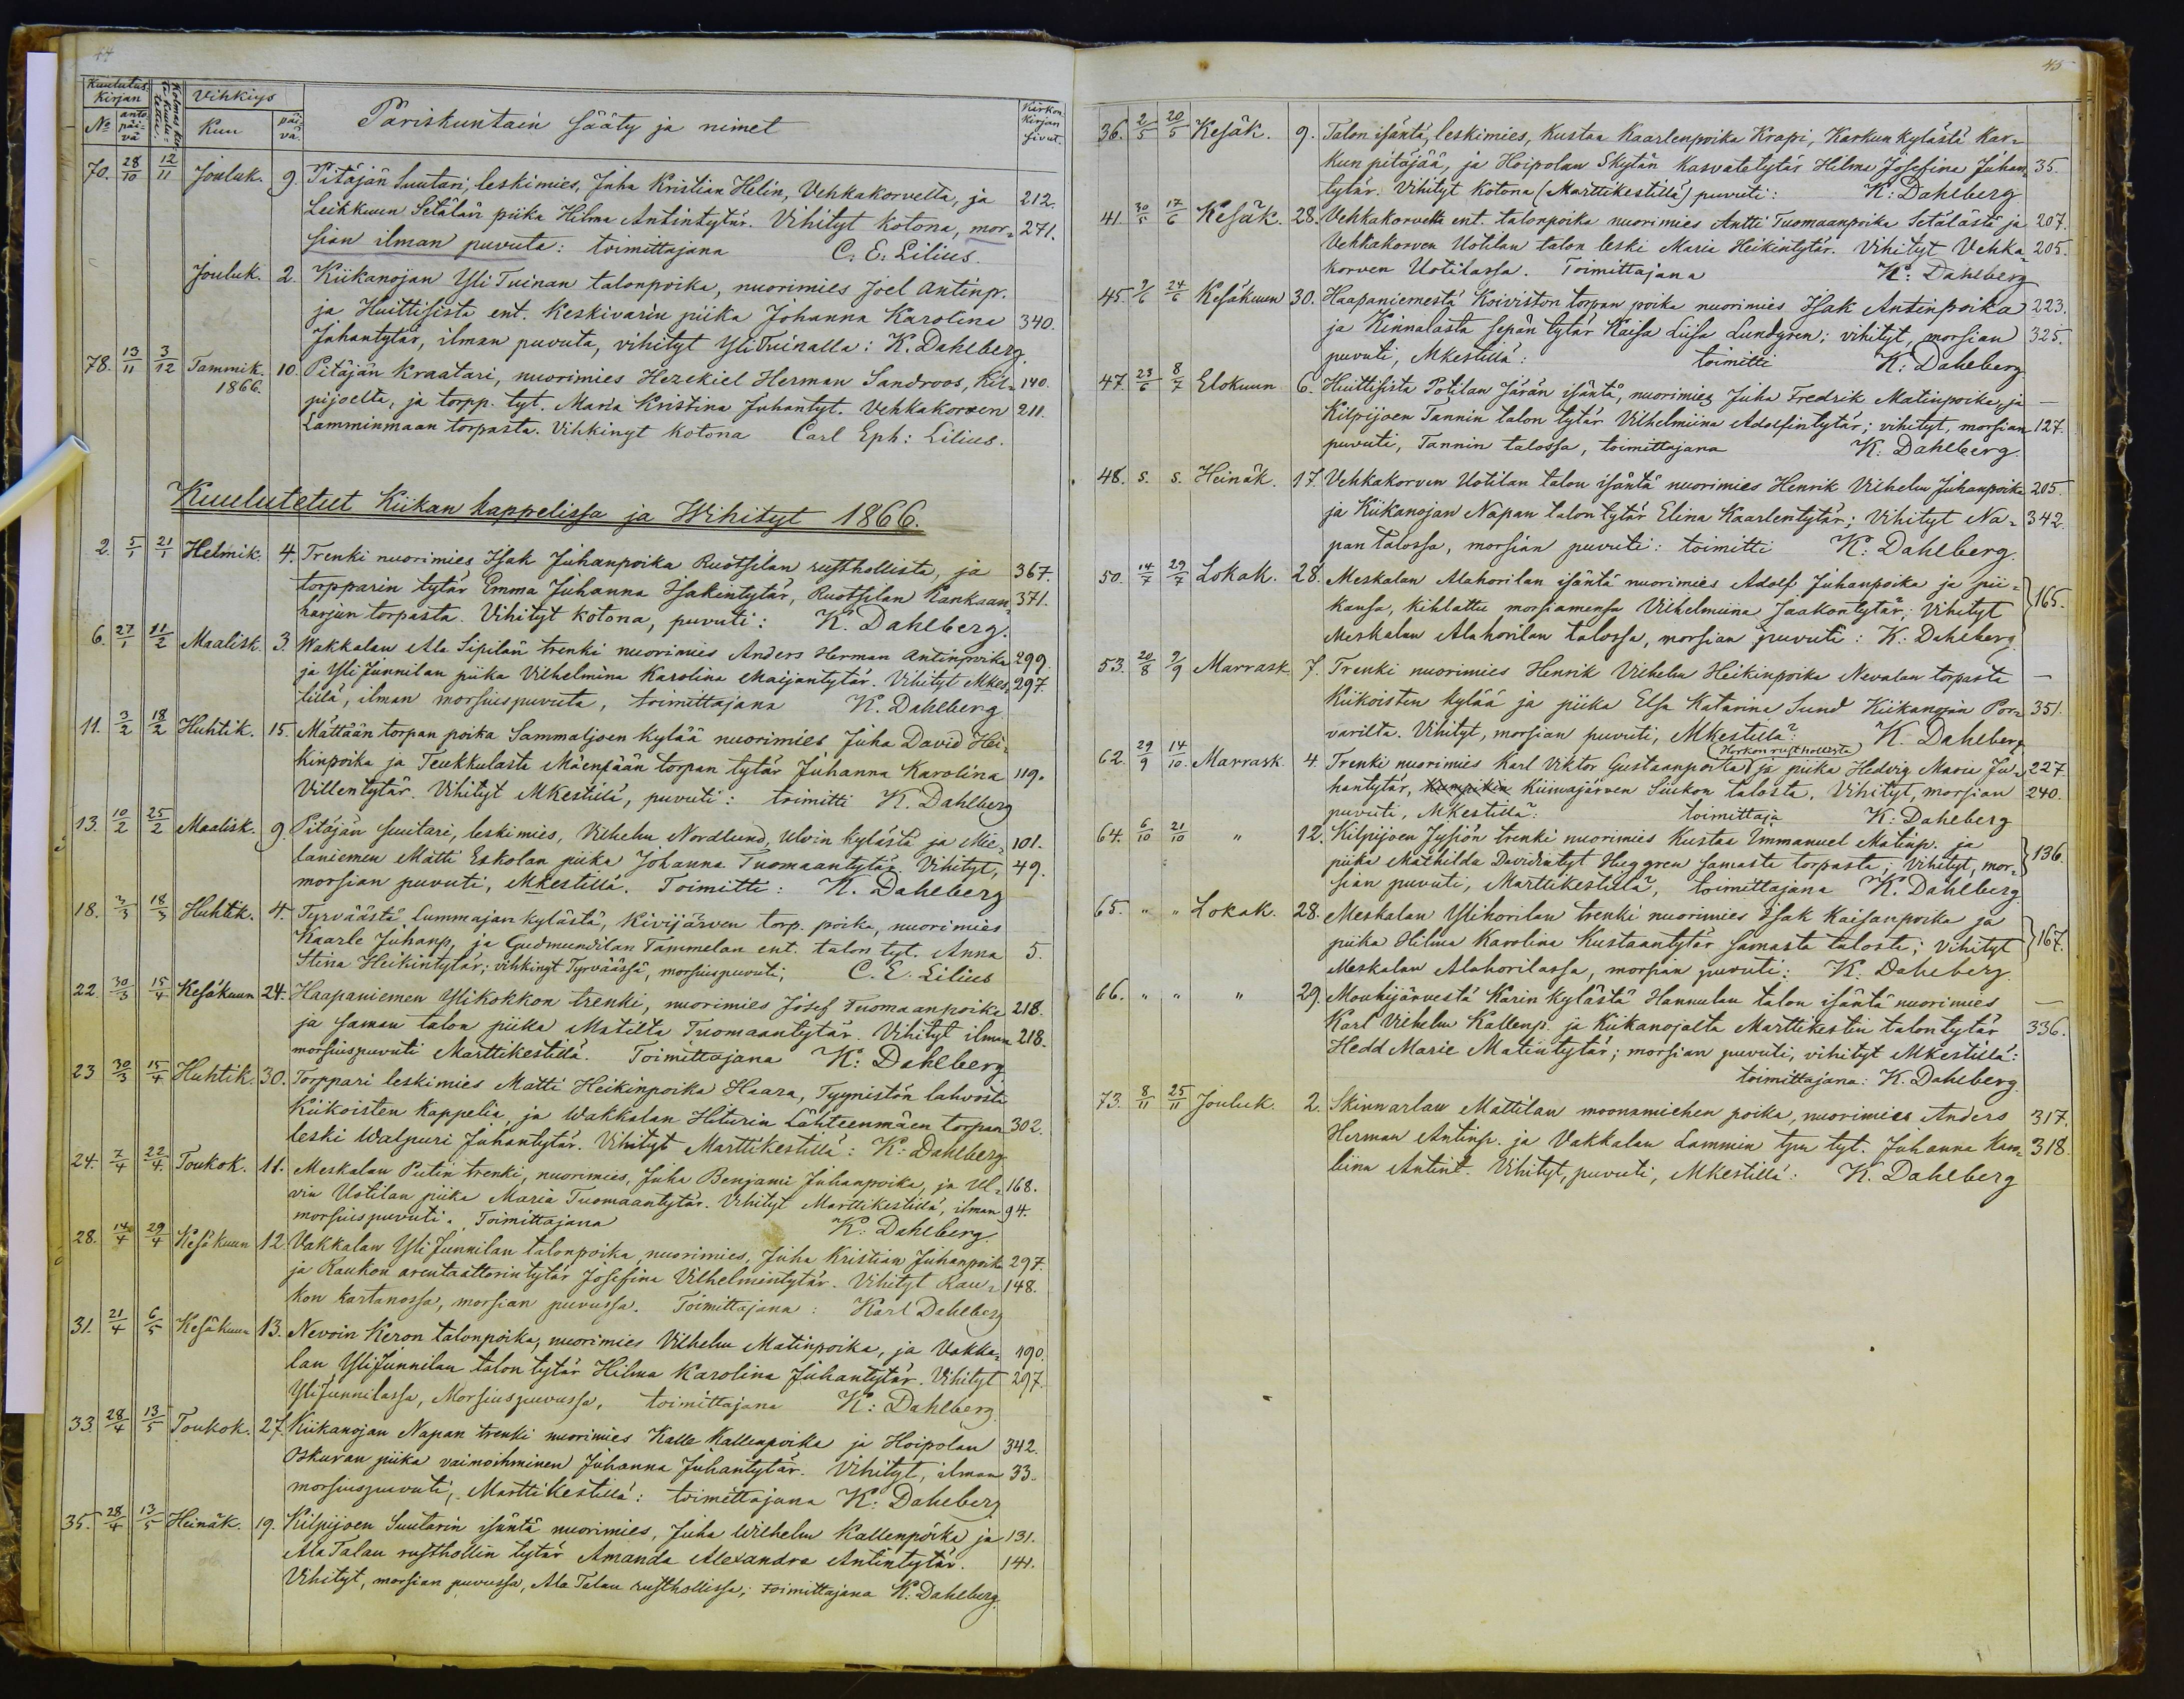 44
Kuulutus Kirjan
Vihkiys
Kirkon Kirjan sivut.
No anto päivä Kuu päivä. Pariskuntain sääty ja nimet
70. 28/10 12/11 Jouluk. 9. Pitäjän Suutari, leskimies, Juha Kristian Helin, Vehkakorvelta, ja 212.
Leikkuun Setälän piika Hilma Antintytär. Vihityt kotona, mor= 271.
sian ilman puvuta: toimittajana C. E. Lilius.
Jouluk. 2. Kiikanojan Yli Tuinan talonpoika, nuorimies Joel Antinp.
ja Huittisista ent. Keskivarin piika Johanna Karolina 340.
Juhantytär, ilman puvuta, vihityt YliTuinalla: K. Dahlberg.
78. 13/11 3/12 Tammik. 10. Pitäjän Kraatari, nuorimies Hezekiel Herman Sandroos, Kil= 140.
1866.
pijoelta, ja torpp. tyt. Maria Kristina Juhantyt. Vehkakorven 211.
Lamminmaan torpasta. Vihkinyt kotona Carl Eph: Lilius.
Kuulutetut Kiikan kappelissa ja Wihityt 1866.
2. 5/1 21/1 Helmik. 4. Trenki nuorimies Isak Juhanpoika Ruotsilan rusthollista, ja 367.
torpparin tytär Emma Juhanna Isakintytär, Ruotsilan Kankaan 371.
harjun torpasta. Vihityt kotona, puvuti: K. Dahlberg.
6. 27/1 11/2 Maalisk. 3. Wakkalan Ala Sipilän trenki nuorimies Anders Herman Antinpoika 299.
ja Yli Junnilan piika Vilhelmina Karolina Maijantytär. Vihityt Mkes, 297.
tillä, ilman morsiuspuvuta, toimittajana K. Dahlberg
11. 3/2 18/2 Huhtik. 15. Mättään torpan poika Sammaljoen kylää nuorimies Juha David Hei=
kinpoika ja Teukkulasta Mäenpään torpan tytär Juhanna Karolina 119.
Villentytär. Vihityt MKestillä, puvuti: toimitti K. Dahlberg
13. 10/2 25/2 Maalisk. 9. Pitäjän suutari, leskimies, Vilhelm Nordlund, Ulvin kylästä ja Mie= 101.
laniemen Matti Eskolan piika Johanna Tuomaantytär. Vihityt, 49.
morsian puvuti, Mkestillä. Toimitti: K. Dahlberg
18. 3/3 18/3 Huhtik. 4. Tyrväästä Lummajan kylästä, Kivijärven torp. poika, nuorimies
Kaarle Juhanp, ja Gudmundilan Tammelan ent. talon tyt. Anna 5.
Stina Heikintytär; vihkinyt Tyrväässä, morsiuspuvuti; C. E. Lilius
22. 30/3 15/4 Kesäkuun 24. Haapaniemen Ylikokkon trenki, nuorimies Josef Tuomaanpoika 218.
ja saman talon piika Matilta Tuomaantytär. Vihityt ilman 218.
morsiuspuvuti Marttikestillä. Toimittajana K: Dahlberg
23 30/3 15/4 Huhtik. 30. Torppari leskimies Matti Heikinpoika Haara, Tyynistön lahvosta
Kiikoisten kappelia, ja Wakkalan Hiturin Lähteenmäen torpan 302.
leski Walpuri Juhantytär. Vihityt Marttikestillä: K: Dahlberg
24. 7/4 22/4 Toukok. 11. Meskalan Putin trenki, nuorimies, Juha Benjami Juhanpoika, ja Ul= 168.
vin Uotilan piika Maria Tuomaantytär. Vihityt Marttikestillä, ilman 94.
morsiuspuvuti. Toimittajana K: Dahlberg.
28. 14/4 29/4 Kesäkuun 12. Vakkalan Yli Junnilan talonpoika, nuorimies, Juha Kristian Juhanpoika 297.
ja Raukon arentaattorin tytär Josefina Vilhelmintytär. Vihityt Rau= 148.
kon kartanossa, morsian puvussa. Toimittajana: Karl Dahlberg
31. 21/4 6/5 Kesäkuun 13. Nevoin Keron talonpoika, nuorimies Vilhelm Matinpoika, ja Vakka= 190.
lan YliJunnilan talon tytär Hilma Karolina Juhantytär. Vihityt 297.
YliJunnilassa, Morsiuspuvussa, toimittajana K: Dahlberg.
33. 28/4 13/5 Toukok. 27. Kiikanojan Napan trenki nuorimies Kalle Kallenpoika ja Hoipolan 342.
Oskuran piika vaimoihminen Juhanna Juhantytär. Vihityt, ilman 33.
morsiuspuvuti, Marttikestillä: toimittajana K: Dahlberg
35. 28/4 13/5 Heinäk. 19. Kilpijoen Suutarin isäntä nuorimies, Juha Wilhelm Kallenpoika ja 131.
Ala Talan rusthollin tytär Amanda Alexandra Antintytär. 141.
Vihityt, morsian puvussa, Ala Talan rusthollissa; toimittajana K. Dahlberg.
45
36. 2/5 20/5 Kesäk. 9. Talon isäntä, leskimies, Kustaa Kaarlenpoika Krapi, Karkun kylästä Kar=
kun pitäjää, ja Hoipolan Skytän kasvatetytär Hilma Josefina Juhan 35.
tytär. Vihityt kotona (Marttikestillä) puvuti: K: Dahlberg
41. 30/5 17/6 Kesäk. 28. Vehkakorvelta ent. talonpoika nuorimies Antti Tuomaanpoika Setälästä ja 207.
Vehkakorven Uotilan talon leski Maria Heikintytär. Vihityt Vehka 205.
korven Uotilassa. Toimittajana K: Dahlberg
45. 9/6 24/6 Kesäkuun 30. Haapaniemestä Koiviston torpan poika nuorimies Isak Antinpoika 223.
ja Kinnalasta sepän tytär Kaisa Liisa Lundgren; vihityt, morsian 325.
puvuti, Mkestillä: toimitti K: Dahlberg
47. 23/6 8/7 Elokuun 6. Huittisista Potilan Järän isäntä, nuorimies Juha Fredrik Matinpoika, ja —
Kilpijoen Tannin talon tytär Vilhelmiina Adolfintytär; vihityt, morsian 127.
puvuti, Tannin talossa, toimittajana K: Dahlberg.
48. s. s. Heinäk. 17. Vehkakorven Uotilan talon isäntä nuorimies Henrik Vilhelm Juhanpoika 205.
ja Kiikanojan Napan talon tytär Elina Kaarlentytär; Vihityt Na= 342.
pan talossa, morsian puvuti: toimitti K: Dahlberg.
50. 14/7 29/7 Lokak. 28. Meskalan Alahorilan isäntä nuorimies Adolf Juhanpoika ja pii= 165.
kansa, kihlattu morsiamensa Vilhelmiina Jaakontytär; Vihityt
Meskalan Alahorilan talossa, morsian puvuti: K: Dahlberg
53. 20/8 9/9 Marrask. 7. Trenki nuorimies Henrik Vilhelm Heikinpoika Nevalan torpasta —
Kiikoisten kylää ja piika Elsa Katarina Sund Kiikanojan Por= 351.
varilta. Vihityt, morsian puvuti, Mkestillä: K. Dahlberg
62. 29/9 14/10. Marrask. 4 Trenki nuorimies Karl Viktor Gustaanpoika (Horkon rusthollista) ja piika Hedvig Maria Ju= 227.
hantytär, Kiimajärven Siukon talosta. Vihityt, morsian 240.
puvuti, Mkestillä: toimittaja K: Dahlberg
64. 6/10 21/10 " 12. Kilpijoen Jysiön trenki nuorimies Kustaa Immanuel Matinp. ja 136.
piika Mathilda Davidintyt Heggren samasta torpasta; Vihityt, mor=
sian puvuti, Marttikestillä, toimittajana K. Dahlberg
65. " " Lokak. 28. Meskalan Ylihorilan trenki nuorimies Isak Kaisanpoika ja 167.
piika Hilma Karolina Kustaantytär samasta talosta; Vihityt
Meskalan Alahorilassa, morsian puvuti: K. Dahlberg.
66. " " " 29. Mouhijärvestä Karin kylästä Hannulan talon isäntä nuorimies —
Karl Vilhelm Kallenp. ja Kiikanojalta Marttikestin talon tytär 336.
Hedd Marie Matintytär; morsian puvuti, vihityt Mkestillä:
toimittajana: K. Dahlberg
73. 8/11 25/11 Jouluk. 2. Skinnarlan Mattilan moonamiehen poika, nuorimies Anders 317.
Herman Antinp. ja Vakkalan Lammin tpn tyt. Juhanna Karo= 318.
liina Antint. Vihityt, puvuti, Mkestillä: K. Dahlberg